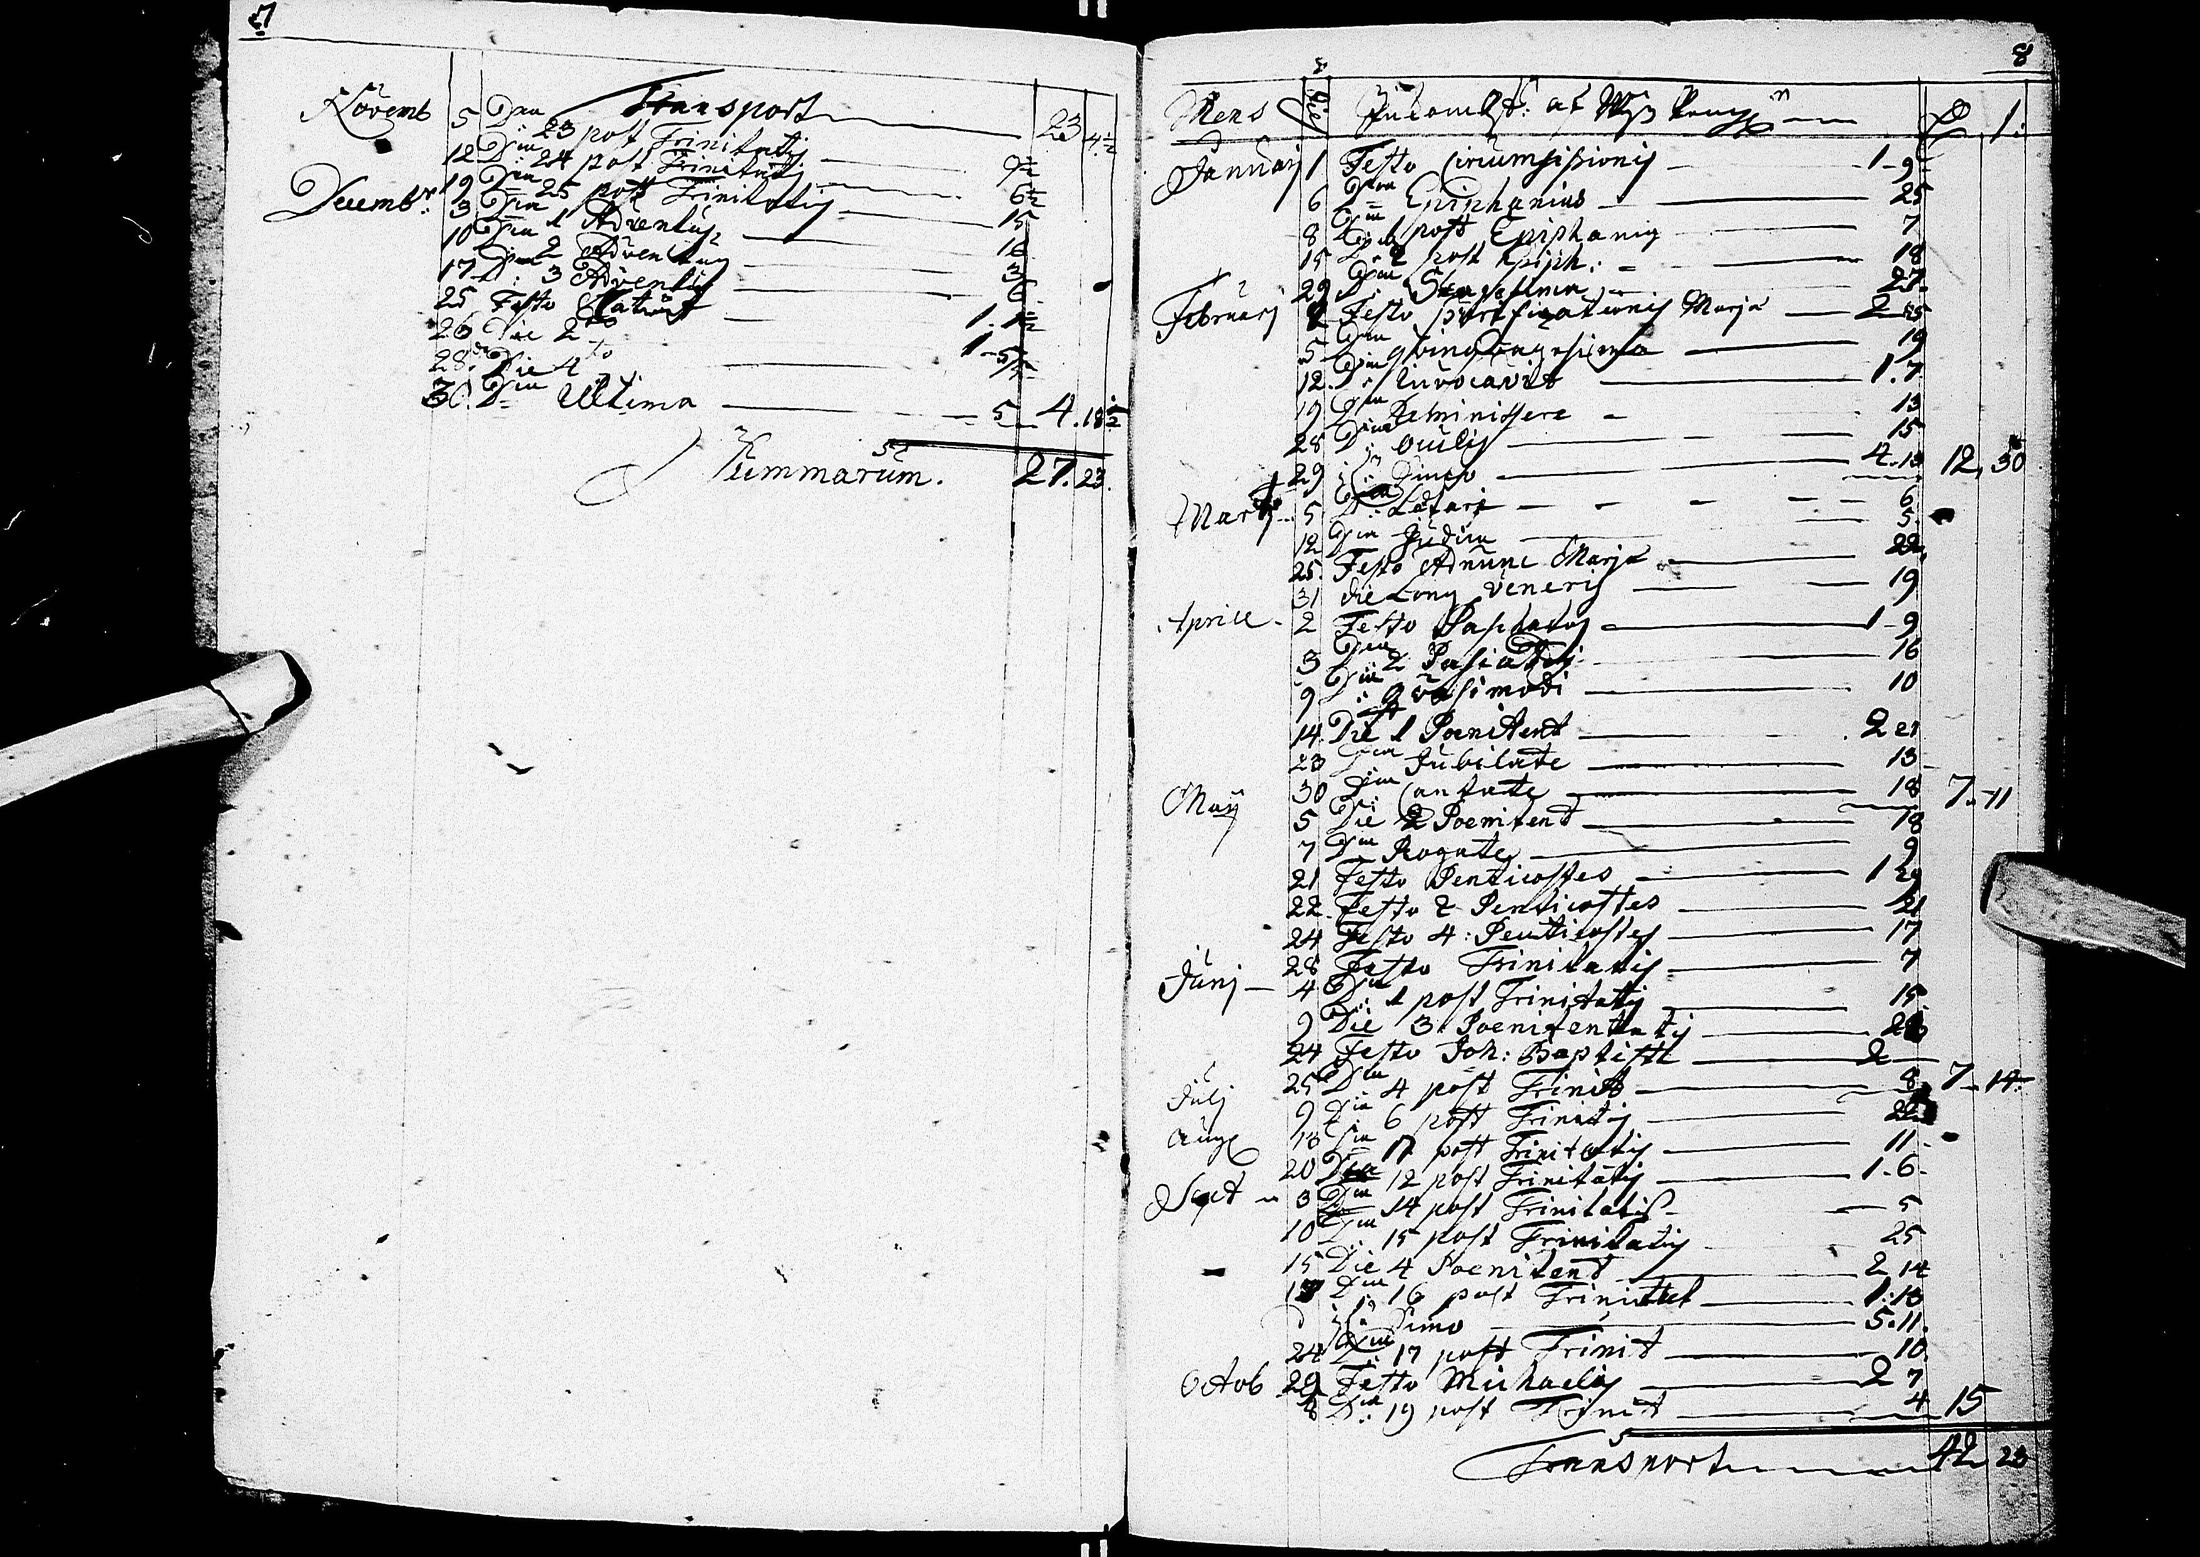 7
Transport 23 4½
Novemb 5 Dna 23 post Trinitatis
12 Dna 24 post Trinitatis 9½
19 Dna 25 post Trinitatis 6½
Decembr: 3 Dna 1 Adventus 15
10 Dna 2 Adventus 16
17 D: 3 Adventus 3
25 Festo Nativit 6
26 Die 2 1. 1½
28 Die 4to 1-5½
30 Dna Ultima 5 4.18½
Summarum. 27.23.
8
Mens Die af 1.
Januarj 1 Festo Circumsisionis 1-9
6 Epiphanius 25
8 Dna 1 post Epiphanis 7
15 D: 2 post Epiph: 18
29 Dna 27.
Februarj 2 Festo purificationis Marja 2 25
5 Dna qvinqvagesima 19
12 D: Invocavit 1.7
19 Dna Reminissere 13
28 Dna Oculis 15
29 4.13 12. 30
Martj 5 Dna Letare 6
12 Dna Judica 5.
25. Festo Annunc Marja 22.
31 die Long Veneris 19
Aprill 2 Festo Paschatos 1-9
3 Dna 2 Paschatos 16
9 qvasimodi 10
14. Die 1 Poenitent 2 21
23 Dna Jubilate 13
30 Dna Cantate 18 7.-11
Maij 5 Die 2 Poenitent 18
7 Dna Rogate 9
21 Festo Penticostes 1 29
22. Festo 2 Penticostes 21
24 Festo 4: Penticostes 17
28 Festo Trinitatis 7
Junj 4 D: 1 post Trinitatis 15
9 Die 3: Poenitentatis
24 Festo Joh: Baptiste 2
25 Dna 4 post Trinit 8 7-14.
Julj 9 Dna 6 post Trinitis 22
Aug 13 Dna post Trinitatis 11
20 Dna 12 post Trinitatis 1-6-
Sept 3 Dna 14 post Trinitatis 5
10 Dna 15 post Trinitatis 25
15 Die 4 Poenitent 2 14
17 Dna 16 post Trinitat 1.13
5.11.
24 D: 17 post Trinit 10.
29 Festo Michaelis 2 7
Octob 8 D: 19 post Trinit 4 15
Transport 42 23